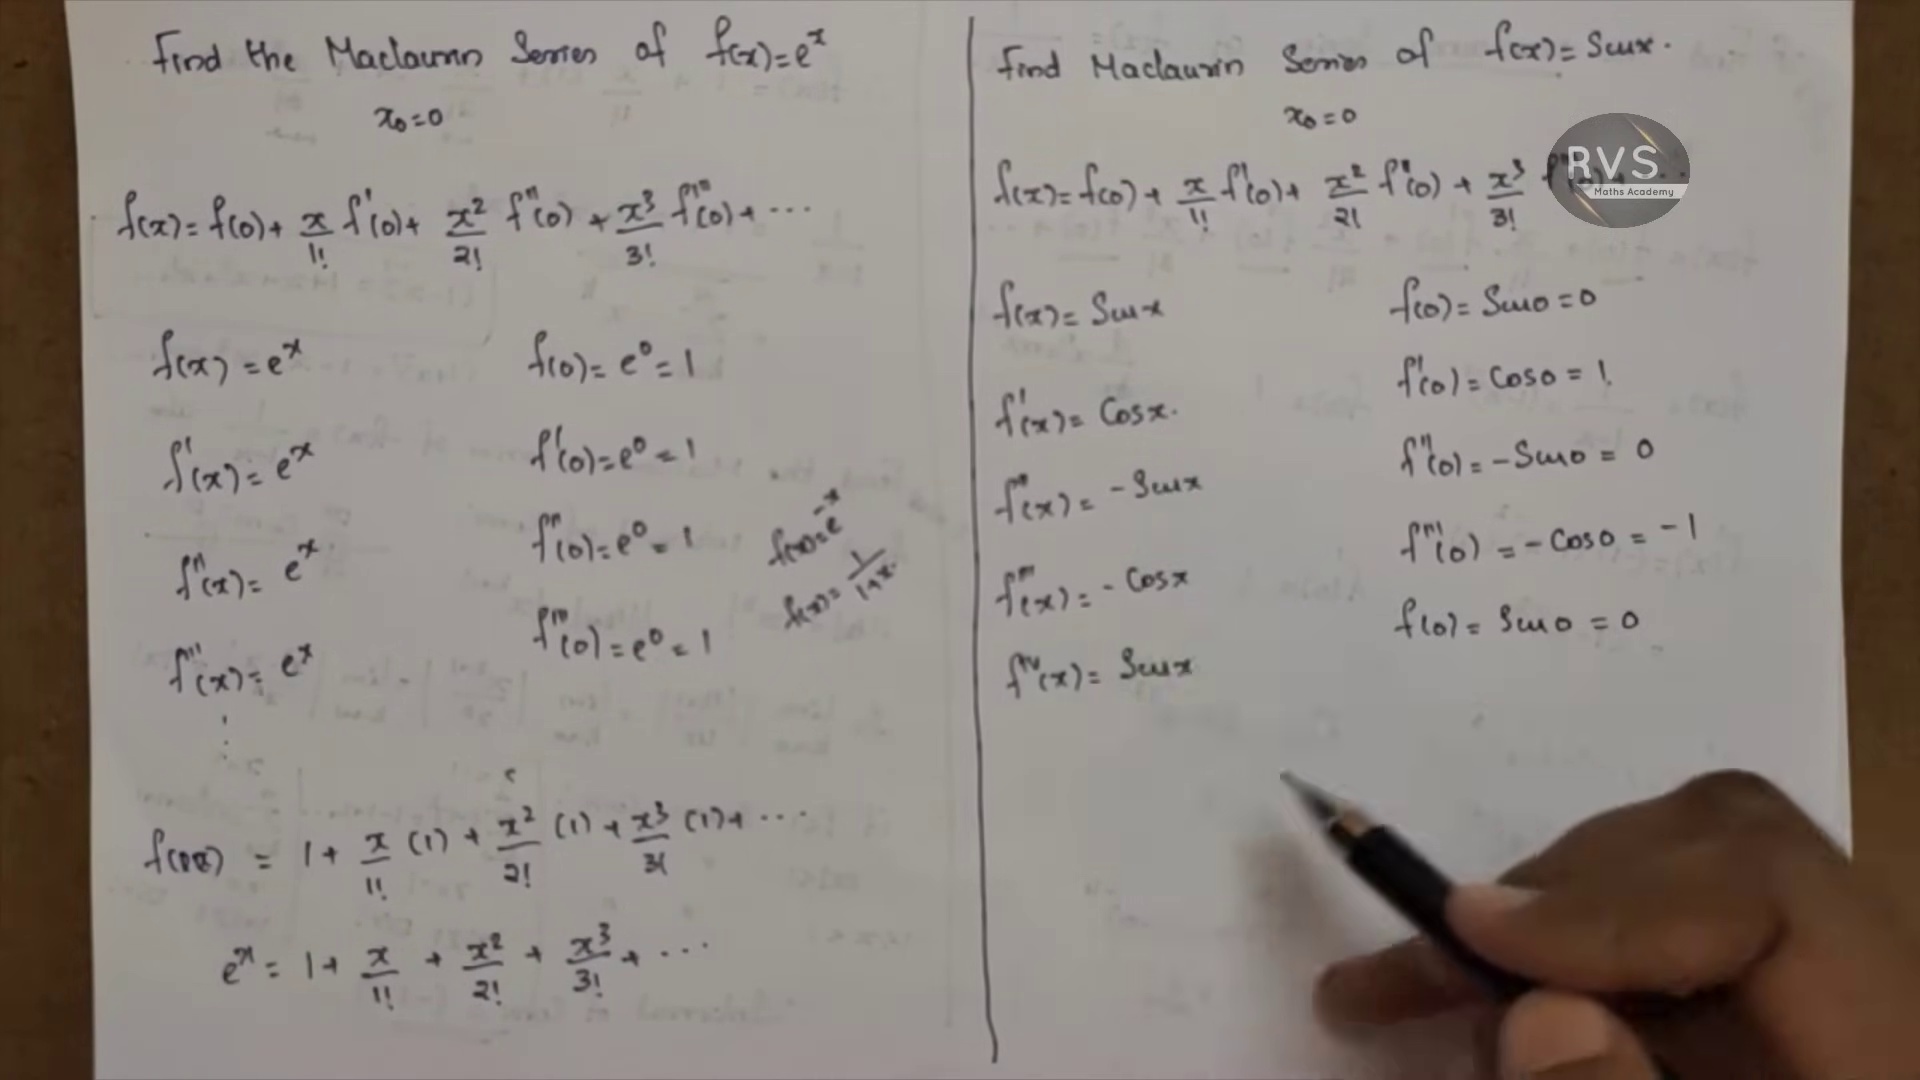 Find the Maclaurin Series of f(x)=e^x
x₀=0
f(x)= f(0)+ x/1! f'(0)+ x²/2! f''(0) + x³/3! f'''(0)+ ...
f(x) = e^x f(0)= e⁰= 1
f'(x)= e^x f'(0)=e⁰ = 1
f''(x)= e^x f''(0)=e⁰ = 1
f'''(x)= e^x f'''(0)=e⁰ = 1
⋮
f(x)=e^-x
f(x)= 1/1+x.
= 1+ x/1! (1) + x²/2! (1) + x³/3! (1)+ ...
e^x = 1+ x/1! + x²/2! + x³/3! + ...
Find Maclaurin Series of f(x)= Sinx.
x₀=0
RVS
Maths Academy
f(x)= f(0)+ x/1! f'(0)+ x²/2! f''(0) + x³/3!
f(x)= Sinx f(0)= Sin0=0
f'(x)= Cosx. f'(0)= Cos0 = 1.
f''(x)= -Sinx f''(0)= -Sin0 = 0
f'''(x)= -Cosx f'''(0) = -Cos0 = -1
f^iv(x)= Sinx f(0)= Sin0 = 0